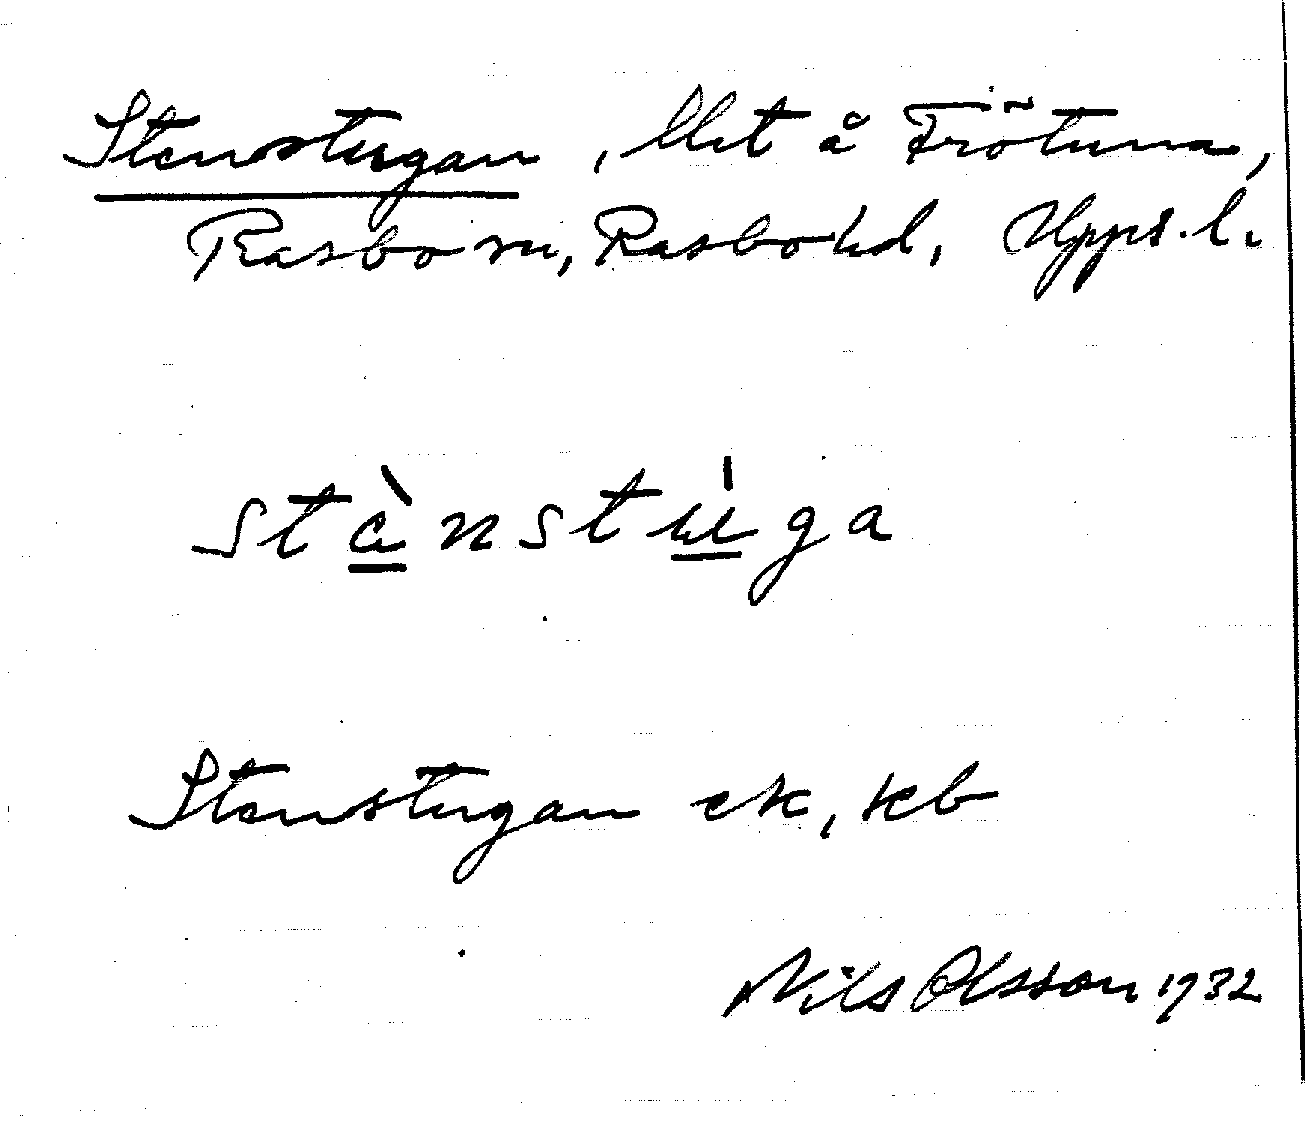 Stenstugan, lht å Frötuna,
Rasbo sn, Rasbo hd, Upps. l.
stànstúga
Stenstugan ek, kb
Nils Olsson 1932